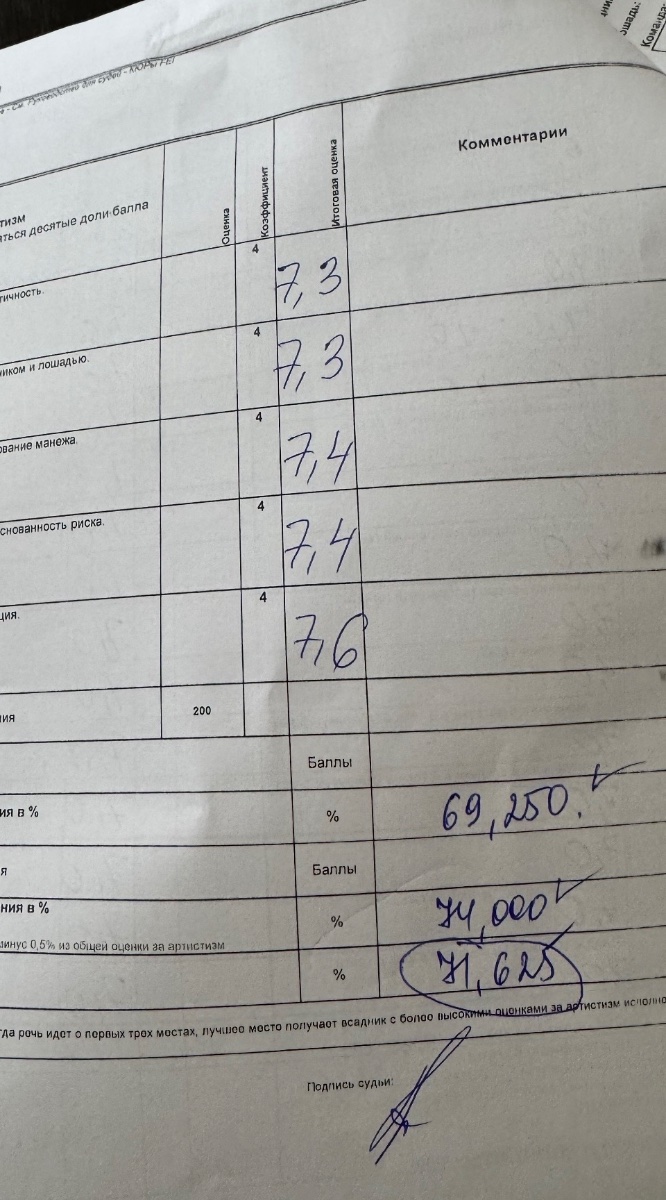 См. Руководство для судей - КЮРЫ FEI
Команда:
Оценка
Коэффициент
Итоговая оценка
Комментарии
тизм
ться десятые доли балла
тичность.
4
7,3
иком и лошадью.
4
7,3
ование манежа.
4
7,4
снованность риска.
4
7,4
ция.
4
7,6
ия
200
Баллы
ия в %
%
69,250.
я
Баллы
ния в %
%
74,000
минус 0,5% из общей оценки за артистизм
%
71,625
гда речь идет о первых трех местах, лучшее место получает всадник с более высокими оценками за артистизм исполне
Подпись судьи: